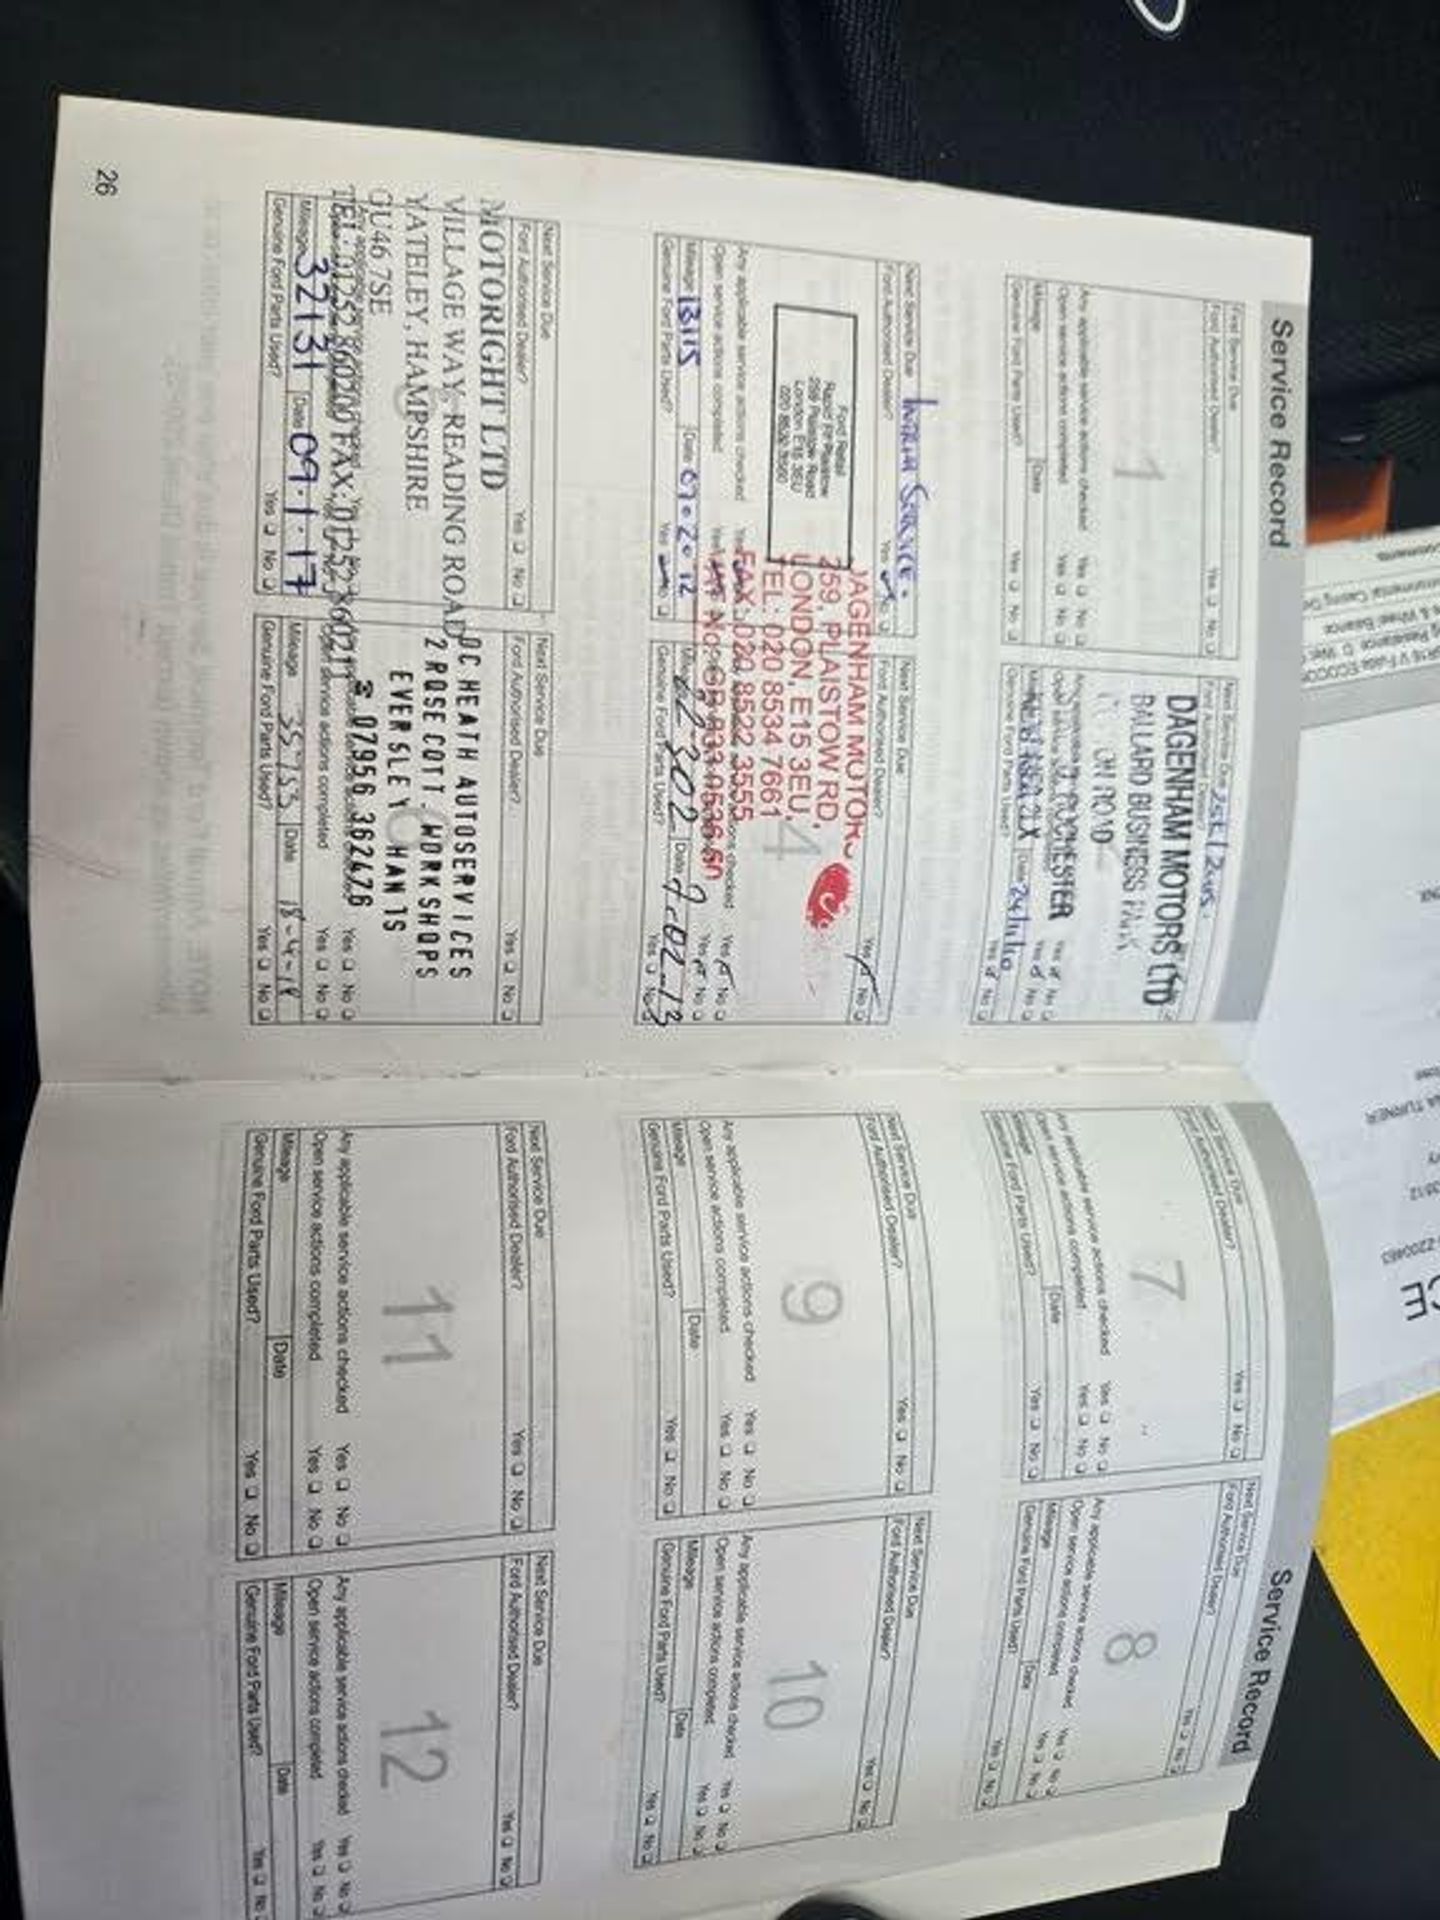 Service Record
First Service Due
Ford Authorised Dealer? Yes No
1
Any applicable service actions checked Yes No
Open service actions completed Yes No
Mileage Date
Genuine Ford Parts Used? Yes No
Next Service Due
Ford Authorised Dealer?
DAGENHAM MOTORS LTD
BALLARD BUSINESS PARK
ON ROAD
ROCHESTER
Date 24/11/10
Genuine Ford Parts Used? Yes No
Next Service Due Interim Service.
Ford Authorised Dealer? Yes No
Ford Retail
259 Plaistow Road
London E15 3EU
Any applicable service actions checked
Open service actions completed
Mileage 13115 Date 07.02.12
Genuine Ford Parts Used? Yes No
Next Service Due
Ford Authorised Dealer? Yes No
4
DAGENHAM MOTORS
259, PLAISTOW RD,
LONDON, E15 3EU,
TEL: 020 8534 7661
FAX: 020 8522 3555
Date 7-02-13
Genuine Ford Parts Used? Yes No
Next Service Due
Ford Authorised Dealer? Yes No
MOTORIGHT LTD
VILLAGE WAY, READING ROAD
YATELEY, HAMPSHIRE
GU46 7SE
TEL: 01252 860200 FAX: 01252 860211
Mileage 32131 Date 09.1.17
Genuine Ford Parts Used? Yes No
Next Service Due
Ford Authorised Dealer? Yes No
DC HEATH AUTOSERVICES
2 ROSE COTT. WORKSHOPS
EVERSLEY HANTS
☎ 07956 362476
Yes No
Open service actions completed Yes No
Mileage 35753 Date 18-4-18
Genuine Ford Parts Used? Yes No
26
Service Record
Next Service Due
Ford Authorised Dealer? Yes No
7
Any applicable service actions checked Yes No
Open service actions completed Yes No
Mileage Date
Genuine Ford Parts Used? Yes No
Next Service Due
Ford Authorised Dealer? Yes No
8
Any applicable service actions checked Yes No
Open service actions completed Yes No
Mileage Date
Genuine Ford Parts Used? Yes No
Next Service Due
Ford Authorised Dealer? Yes No
9
Any applicable service actions checked Yes No
Open service actions completed Yes No
Mileage Date
Genuine Ford Parts Used? Yes No
Next Service Due
Ford Authorised Dealer? Yes No
10
Any applicable service actions checked Yes No
Open service actions completed Yes No
Mileage Date
Genuine Ford Parts Used? Yes No
Next Service Due
Ford Authorised Dealer? Yes No
11
Any applicable service actions checked Yes No
Open service actions completed Yes No
Mileage Date
Genuine Ford Parts Used? Yes No
Next Service Due
Ford Authorised Dealer? Yes No
12
Any applicable service actions checked Yes No
Open service actions completed Yes No
Mileage Date
Genuine Ford Parts Used? Yes No
TURNER